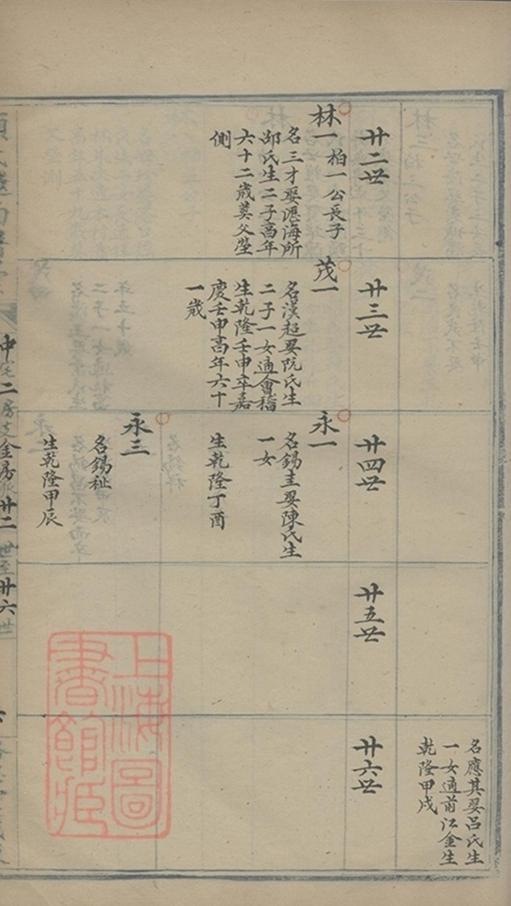 名應其娶呂氏生
一女適前江金生
乾隆甲戌
廿二世
林一
柏一公長子
名三才娶瀝海所
邵氏生二子高年
六十二歲葬父塋
側
廿三世
茂一
名漢超娶阮氏生
二子一女適會稽
生乾隆壬申卒嘉
慶壬申高年六十
一歲
廿四世
永一
名錫圭娶陳氏生
一女
生乾隆丁酉
永三
名錫祉
生乾隆甲辰
廿五世
廿六世
上海圖
書館藏
金房
廿二世至廿六世